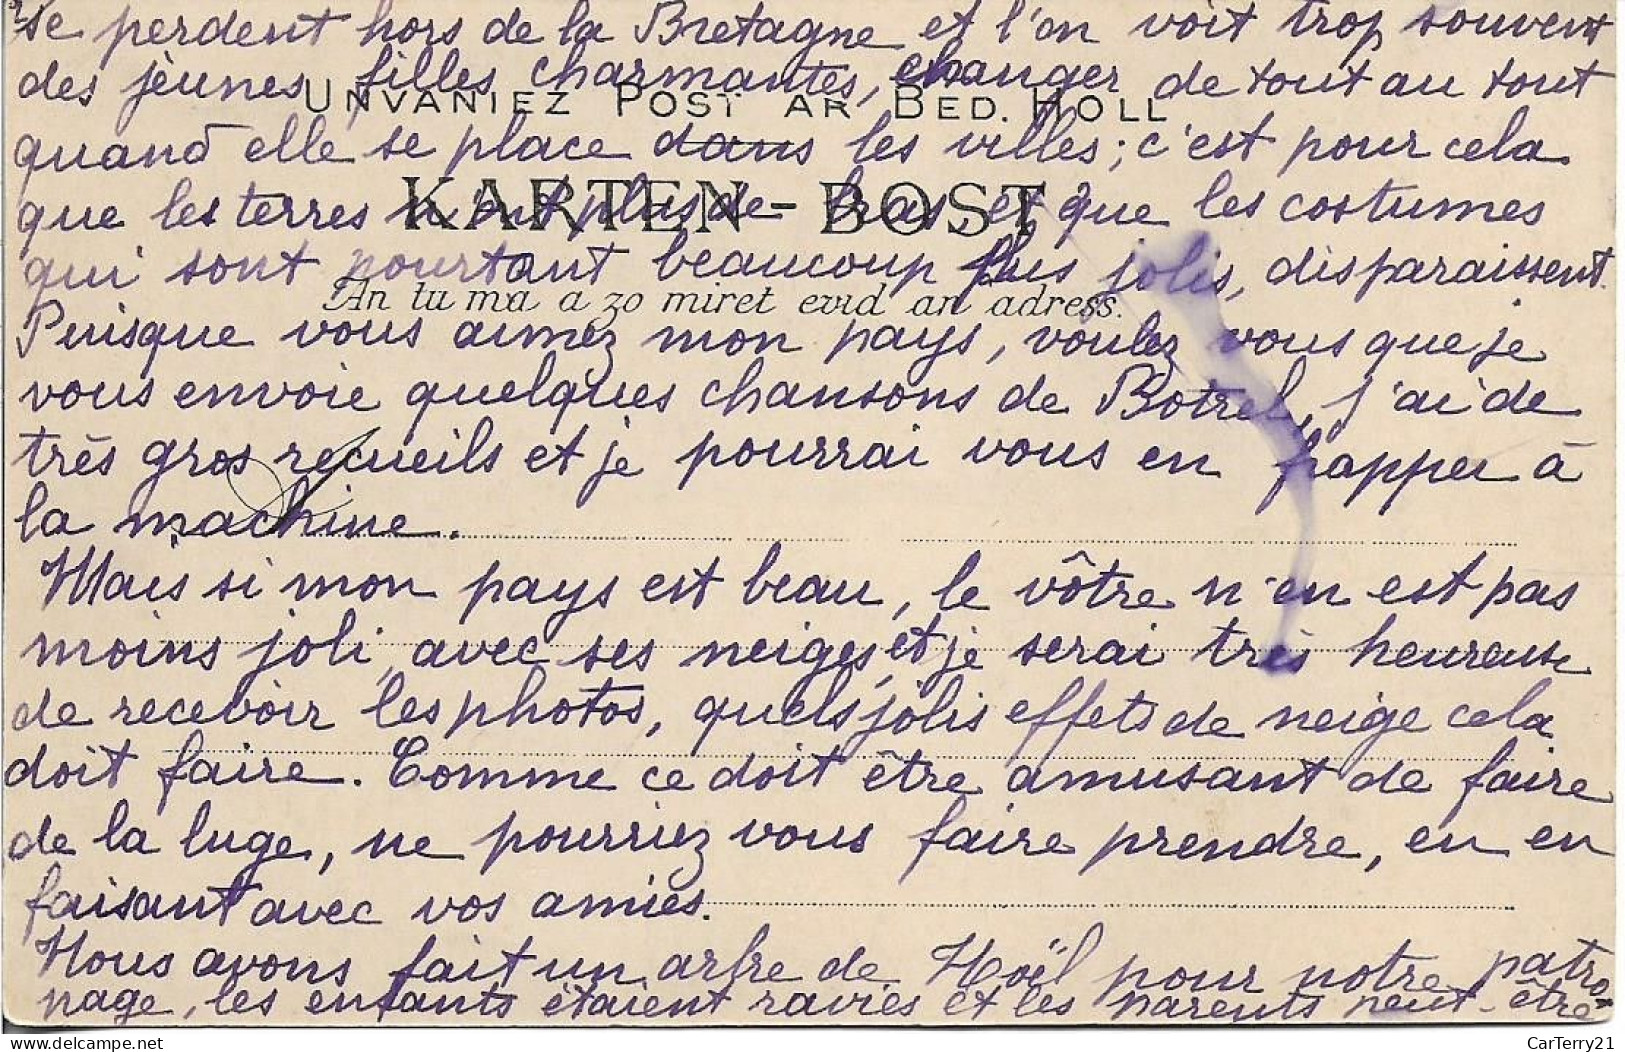 se perdent hors de la Bretagne et l'on voit trop souvent
des jeunes filles charmantes, changer de tout au tout
UNVANIEZ POST AR BED. HOLL
quand elle se place dans les villes ; c'est pour cela
que les terres n'ont plus de bras, et que les costumes
KARTEN-BOST
qui sont pourtant beaucoup plus jolis, disparaissent.
An tu ma a zo miret evid an adress.
Puisque vous aimez mon pays, voulez vous que je
vous envoie quelques chansons de Botrel, j'ai de
très gros recueils et je pourrai vous en frapper à
la machine.
Mais si mon pays est beau, le vôtre n'en est pas
moins joli, avec ses neiges, et je serai très heureuse
de recevoir les photos, quels jolis effets de neige cela
doit faire. Comme ce doit être amusant de faire
de la luge, ne pourriez vous faire prendre, en en
faisant avec vos amies.
Nous avons fait un arbre de Noël pour notre patro-
nage, les enfants étaient ravies et les parents peut-être
CarTerry21